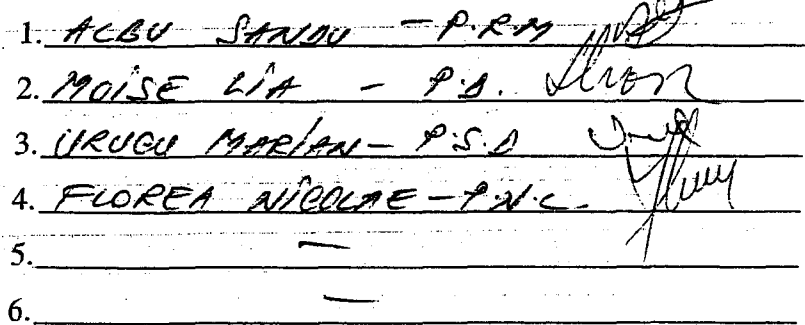 1. ALBU SANDU - P.R.M
2. MOISE LIA - P.D.
3. URUGU MARIAN - P.S.D
4. FLOREA NICOLAE - P.N.L.
5. —
6. —